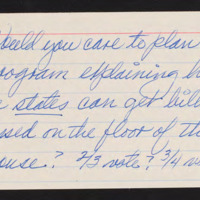 Would you care to plan
program explaining h
e states can get bill
ssed on the floor of th
ouse? 2/3 vote? 3/4 v